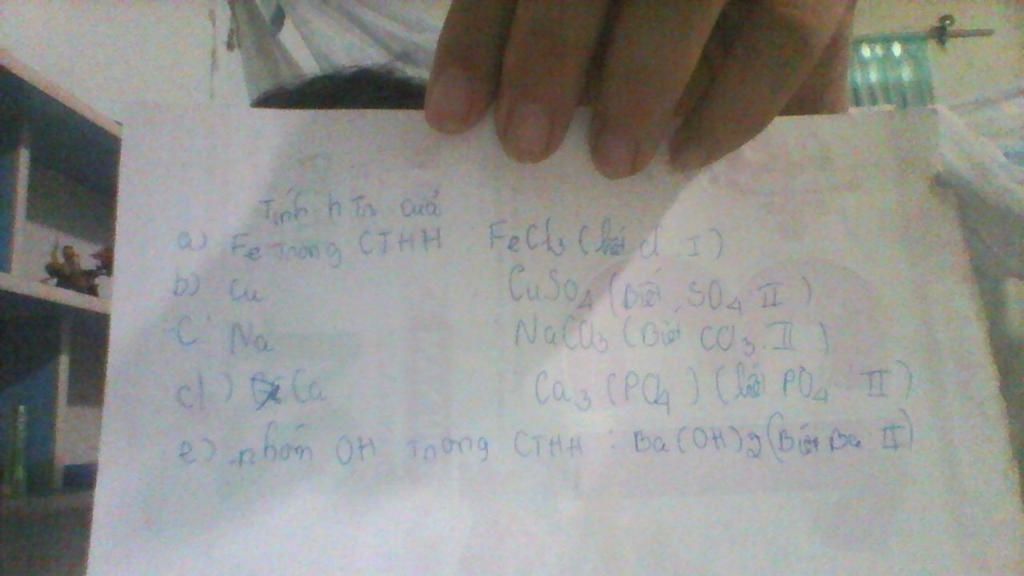 Tính h Trị của
a) Fe Trong CTHH FeCl3 (biết Cl I)
b) Cu CuSO4 (Biết SO4 II)
C Na NaCO3 (Biết CO3 II)
d) Ca Ca3 (PO4) (biết PO4 II)
e) nhóm OH Trong CTHH : Ba(OH)2 (Biết Ba II)